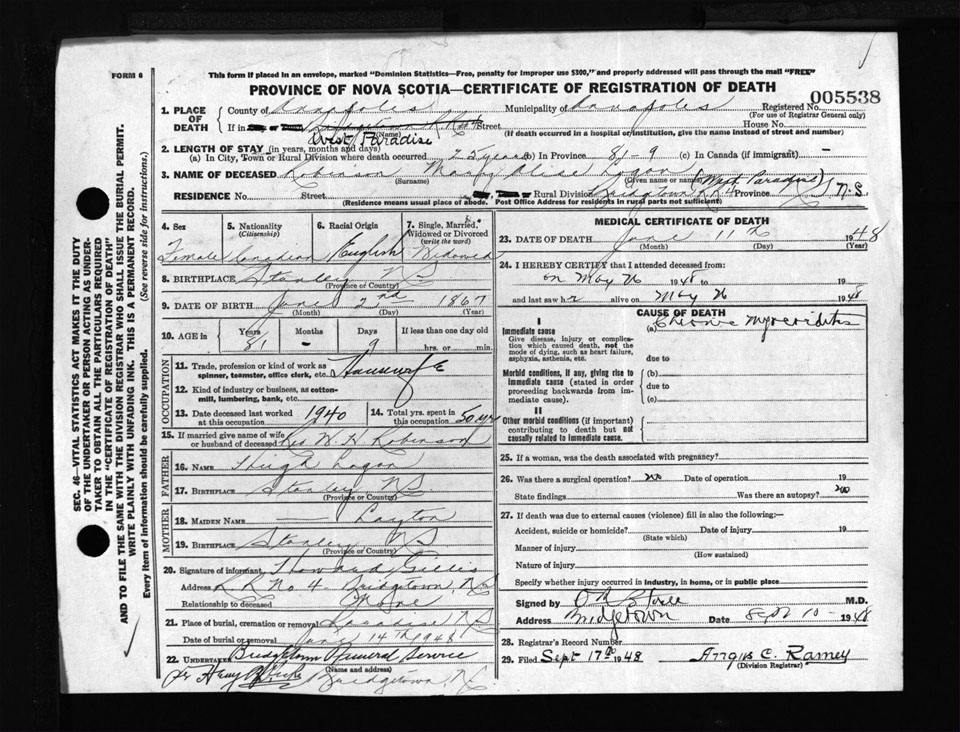 FORM 6
This form if placed in an envelope, marked "Dominion Statistics—Free, penalty for improper use $300," and properly addressed will pass through the mail "FREE"
PROVINCE OF NOVA SCOTIA—CERTIFICATE OF REGISTRATION OF DEATH
005538
SEC. 46—VITAL STATISTICS ACT MAKES IT THE DUTY
OF THE UNDERTAKER OR PERSON ACTING AS UNDER-
TAKER TO OBTAIN ALL THE PARTICULARS REQUIRED
IN THE "CERTIFICATE OF REGISTRATION OF DEATH"
AND TO FILE THE SAME WITH THE DIVISION REGISTRAR WHO SHALL ISSUE THE BURIAL PERMIT.
WRITE PLAINLY WITH UNFADING INK. THIS IS A PERMANENT RECORD.
Every item of information should be carefully supplied. (See reverse side for instructions.)
1. PLACE OF DEATH County of Annapolis Municipality of Annapolis Registered No.
(For use of Registrar General only)
If in Street House No.
(Name) (If death occurred in a hospital or institution, give the name instead of street and number)
West Paradise
2. LENGTH OF STAY (in years, months and days)
(a) In City, Town or Rural Division where death occurred 25 years (b) In Province 81-9 (c) In Canada (if immigrant) –
3. NAME OF DECEASED Robinson Mary Logan
(Surname) (Given name or names)
RESIDENCE No. Street Rural Division Bridgetown Province N.S
(Residence means usual place of abode. Post Office Address for residents in rural parts not sufficient)
4. Sex Female
5. Nationality (Citizenship) Canadian
6. Racial Origin English
7. Single, Married, Widowed or Divorced (write the word) Widowed
8. BIRTHPLACE Stanley NS
(Province or Country)
9. DATE OF BIRTH June 2nd 1867
(Month) (Day) (Year)
10. AGE in Years 81 Months – Days 9 If less than one day old hrs. or min.
OCCUPATION
11. Trade, profession or kind of work as spinner, teamster, office clerk, etc. Housewife
12. Kind of industry or business, as cotton-mill, lumbering, bank, etc.
13. Date deceased last worked at this occupation 1940
14. Total yrs. spent in this occupation 50 yrs
15. If married give name of wife or husband of deceased W. H. Robinson
FATHER
16. NAME Hugh Logan
17. BIRTHPLACE Stanley NS
(Province or Country)
MOTHER
18. MAIDEN NAME Layton
19. BIRTHPLACE Stanley NS
(Province or Country)
20. Signature of informant Howard Gillis
Address RR No 4 Bridgetown, NS
Relationship to deceased None
21. Place of burial, cremation or removal Paradise NS
Date of burial or removal June 14th 1948
22. UNDERTAKER Bridgetown Funeral Service
(Name and address)
Per Bridgetown, NS
MEDICAL CERTIFICATE OF DEATH
23. DATE OF DEATH June 11th 1948
(Month) (Day) (Year)
24. I HEREBY CERTIFY that I attended deceased from
on May 26 1948 to 19
and last saw her alive on May 26 1948
CAUSE OF DEATH
I
Immediate cause
Give disease, injury or complication which caused death, not the mode of dying, such as heart failure, asphyxia, asthenia, etc.
(a) Chronic Myocarditis
due to
Morbid conditions, if any, giving rise to immediate cause (stated in order proceeding backwards from immediate cause).
(b)
due to
(c)
II
Other morbid conditions (if important) contributing to death but not causally related to immediate cause.
25. If a woman, was the death associated with pregnancy?
26. Was there a surgical operation? no Date of operation 19
State findings Was there an autopsy? no
27. If death was due to external causes (violence) fill in also the following:—
Accident, suicide or homicide? Date of injury 19
(State which)
Manner of injury
(How sustained)
Nature of injury
Specify whether injury occurred in industry, in home, or in public place
Signed by M.D.
Address Bridgetown Date Sept 10 1948
28. Registrar's Record Number
29. Filed Sept 17th 1948 Angus C. Ramey
(Division Registrar)